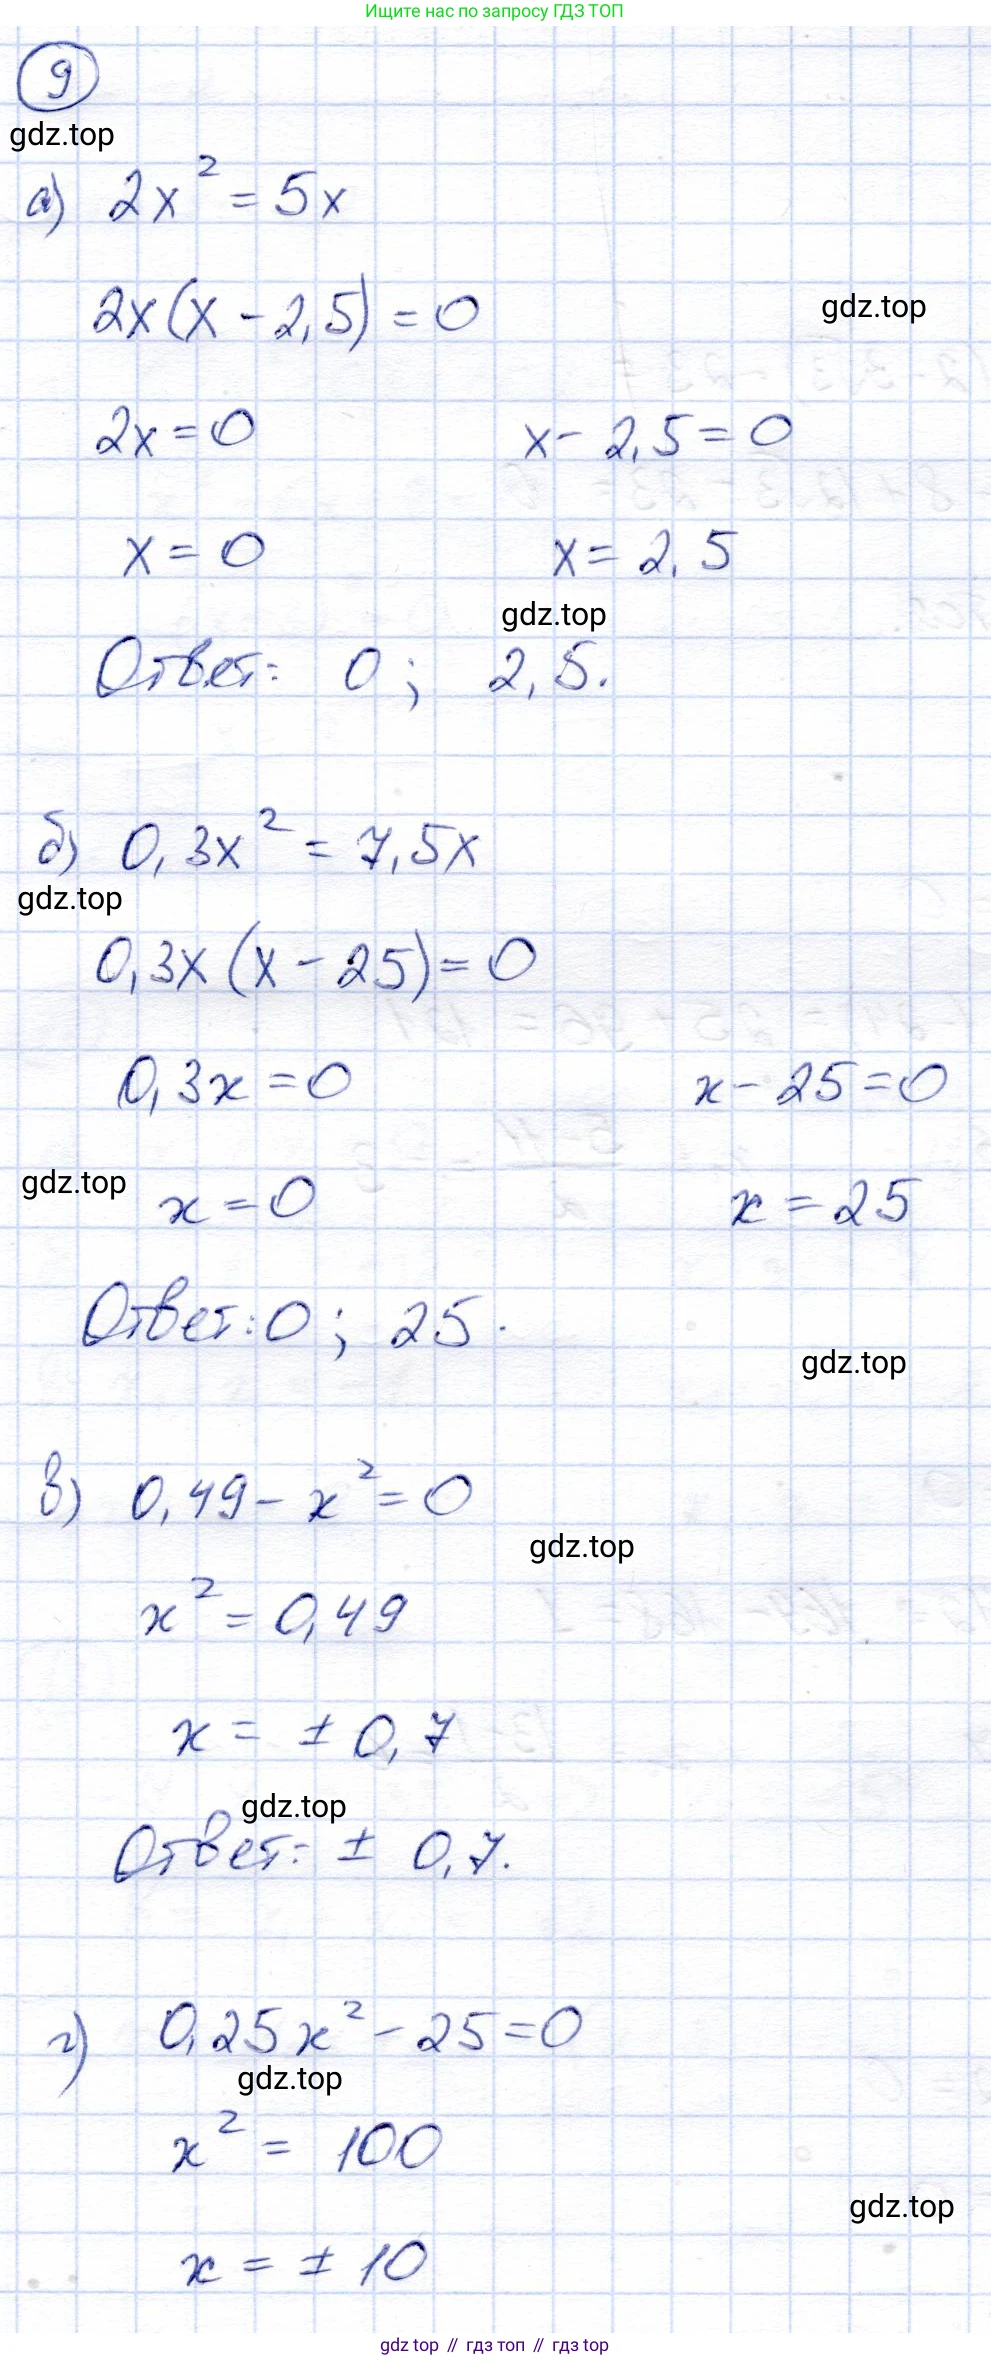 Ищите нас по запросу ГДЗ ТОП
9
gdz.top
а) 2x² = 5x
2x(x - 2,5) = 0
gdz.top
2x = 0 x - 2,5 = 0
x = 0 x = 2,5
gdz.top
Ответ: 0; 2,5.
б) 0,3x² = 7,5x
gdz.top
0,3x(x - 25) = 0
0,3x = 0 x - 25 = 0
gdz.top
x = 0 x = 25
Ответ: 0; 25.
gdz.top
в) 0,49 - x² = 0
gdz.top
x² = 0,49
x = ± 0,7
gdz.top
Ответ: ± 0,7.
г) 0,25x² - 25 = 0
gdz.top
x² = 100
gdz.top
x = ± 10
gdz top // гдз топ // гдз top